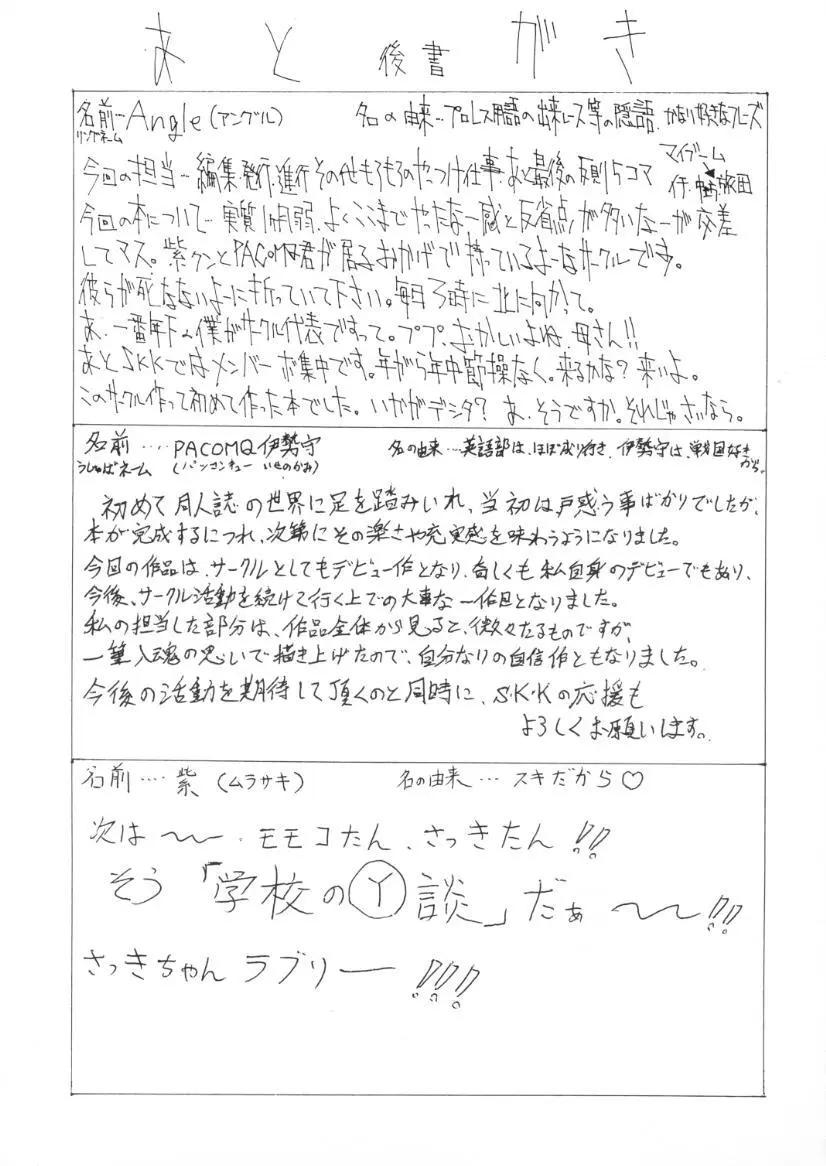 あとがき
後書
名前…Angle(アングル) 名の由来…プロレス用語の出来レース等の隠語。かなり好きなフレーズ
リングネーム
マイブーム
今回の担当…編集、発行、進行その他もろもろのやっつけ仕事。あと最後の反則5コマ
今回の本について…実質1ヶ月弱、よくここまでやったなー感と反省点が多いなーが交差
してマス。紫クンとPACOMQ君が居るおかげで持っているよーなサークルです。
彼らが死なないよーに祈っていて下さい。毎日3時に北に向かって。
あ、一番年下の僕がサークル代表ですって。ププ、おかしいよね、母さん!!
あとSKKではメンバー募集中です。年がら年中節操なく。来るかな?来いよ。
このサークル作って初めて作った本でした。いかがデシタ?あ、そうですか。それじゃさいなら。
名前…. PACOMQ伊勢守 名の由来…英語部は、ほぼ成り行き、伊勢守は、戦国好き
だから。
うしゅばネーム (パコンキュー いせのかみ)
初めて同人誌の世界に足を踏みいれ、当初は戸惑う事ばかりでしたが、
本が完成するにつれ、次第にその楽さや充実感を味わうようになりました。
今回の作品は、サークルとしてもデビュー作となり、奇しくも私自身のデビューでもあり、
今後、サークル活動を続けて行く上での大事な一作目となりました。
私の担当した部分は、作品全体から見ると、微々たるものですが、
一筆入魂の思いで描き上げたので、自分なりの自信作ともなりました。
今後の活動を期待して頂くのと同時に、S・K・Kの応援も
よろしくお願いします。
名前…. 紫(ムラサキ) 名の由来… スキだから♡
次は〜〜. モモコたん、さっきたん!!
そう「学校のⓎ談」だぁ〜〜!!
さっきちゃん ラブリー!!!